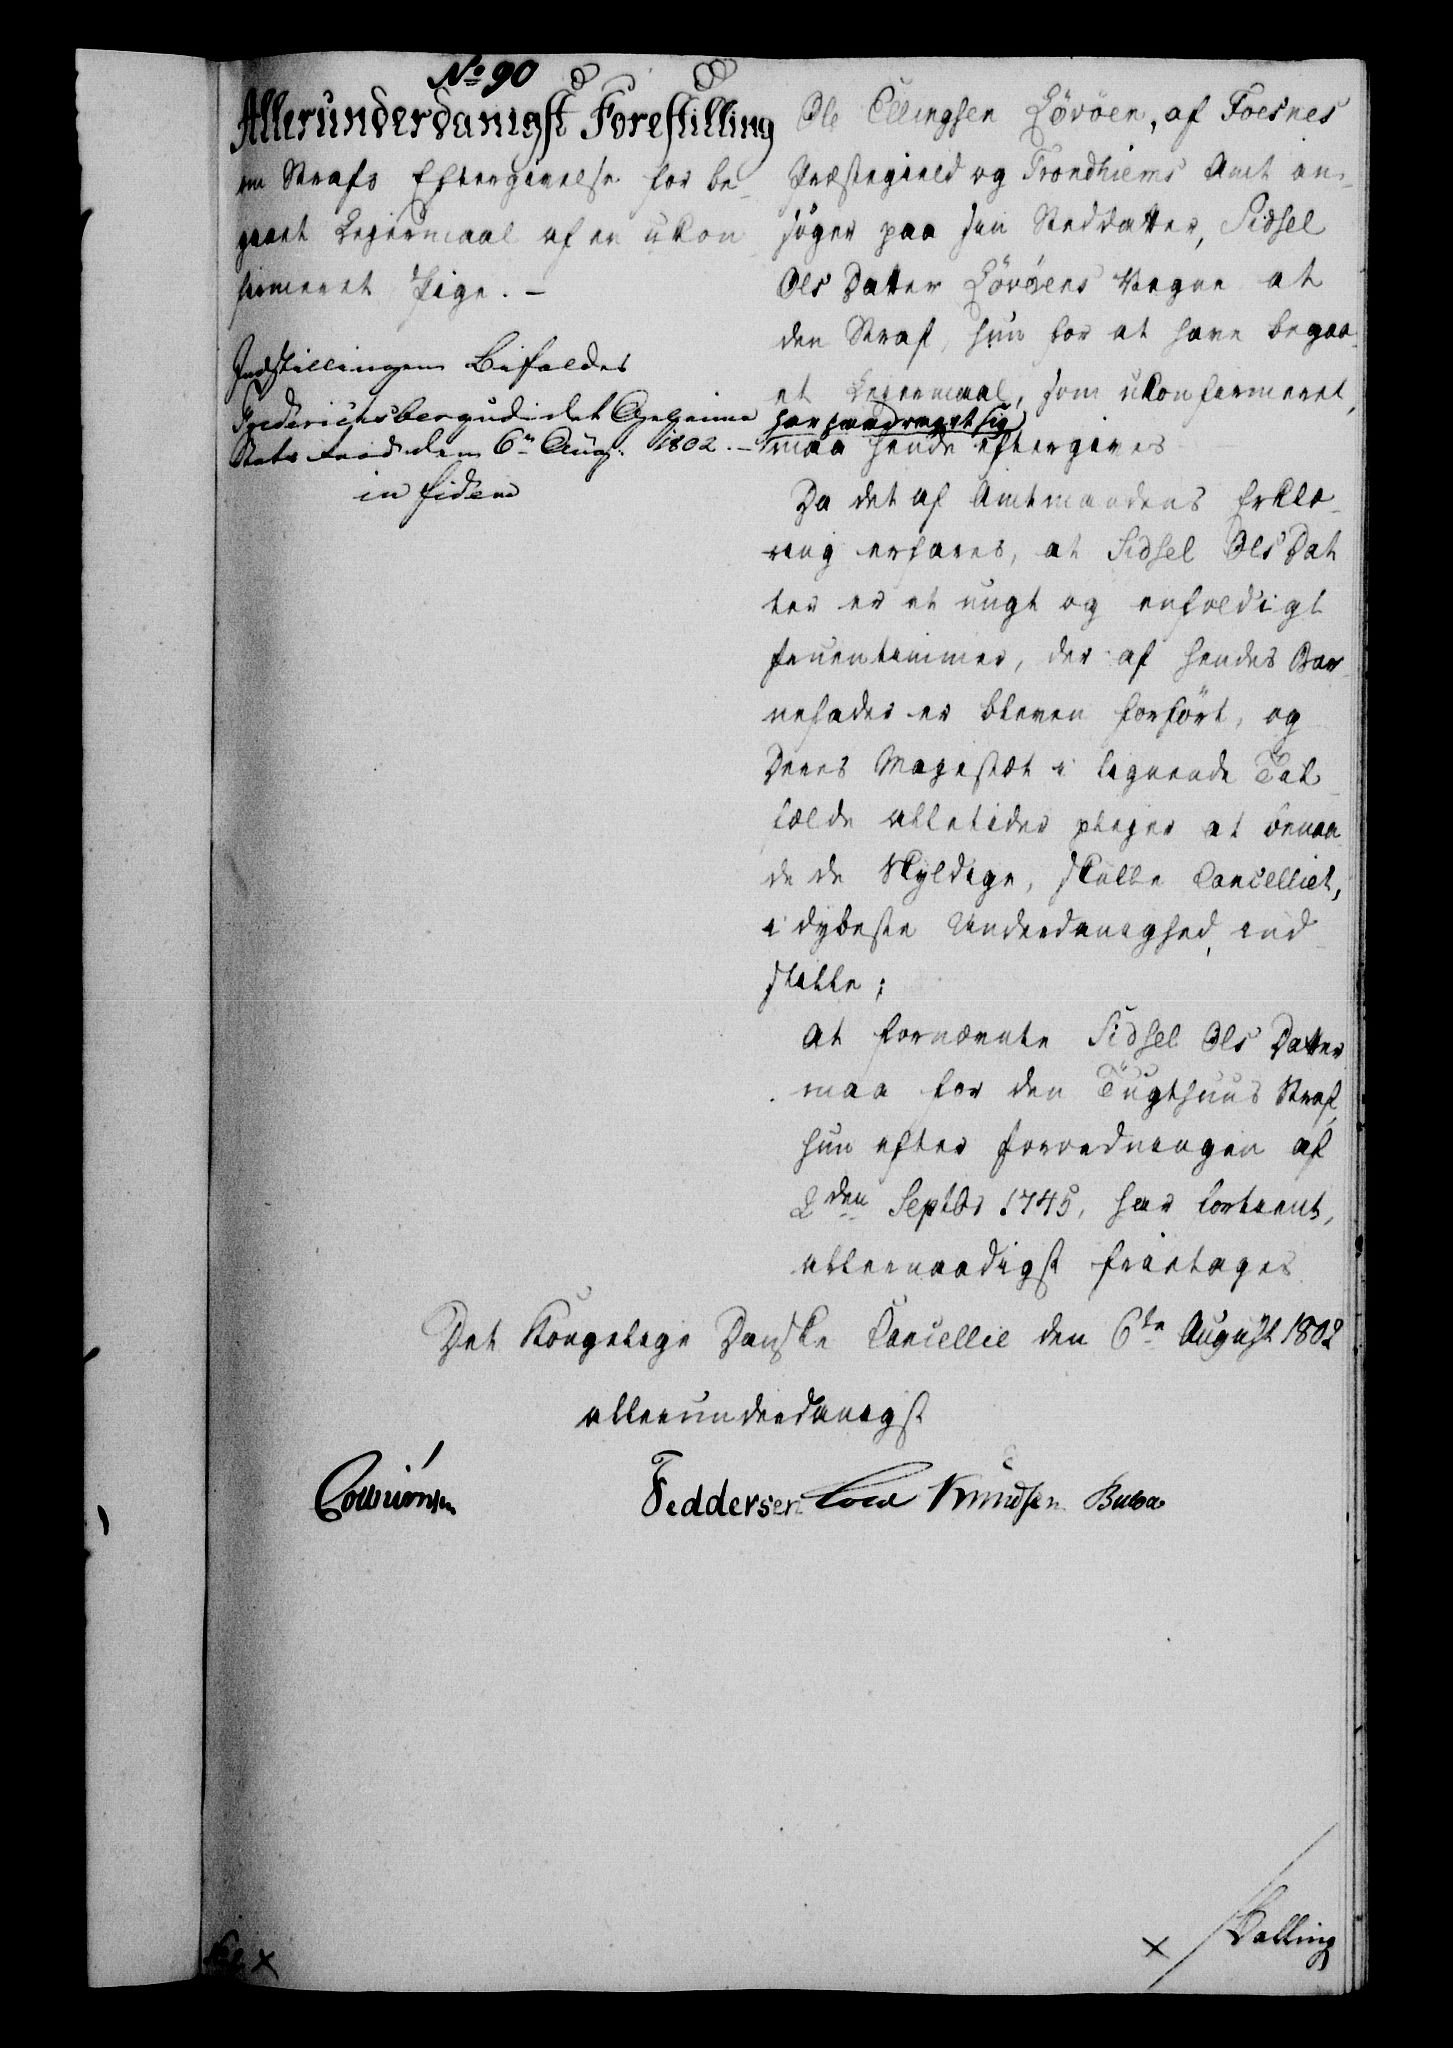 No 90
Allerunderdanigst Forestilling
om Strafs Eftergivelse for be-
gaaet Leiermaal af en ukon-
firmeret Pige. -
Indstillingen Bifaldes
Frederichsberg udi det Geheime
Stats Raad den 6te Aug. 1802. -
in fidem
Ole Ellingsen Lövöen, af Foesnes
Præstegield og Trondhiems Amt an-
søger paa sin Steddatter, Sidsel
Ols Datter Lövöens Vegne at
den Straf, hun for at have begaa-
et Leiermaal, som ukonfirmeret,
har paadraget sig
maa hende eftergives
Da det af Amtmandens Erklæ-
ring erfares, at Sidsel Ols Dat
ter er et ungt og enfoldigt
Fruentimmer, der af hendes Bar-
nefader er bleven forført, og
Deres Majestæt i lignende Til-
fælde alletider pleier at benaa-
de de Skyldige, skulle Cancelliet,
i dybeste Underdanighed, ind-
stille;
At fornævnte Sidsel Ols Datter
maa for den Tugthuus Straf,
hun efter Forordningen af
2den Septbr 1745, har fortient,
allernaadigst fritages
Det Kongelige Danske Cancellie den 6te August 1802
allerunderdanigst
Colbiørnsen
Feddersen Cold Knudsen Bülow
Skalling